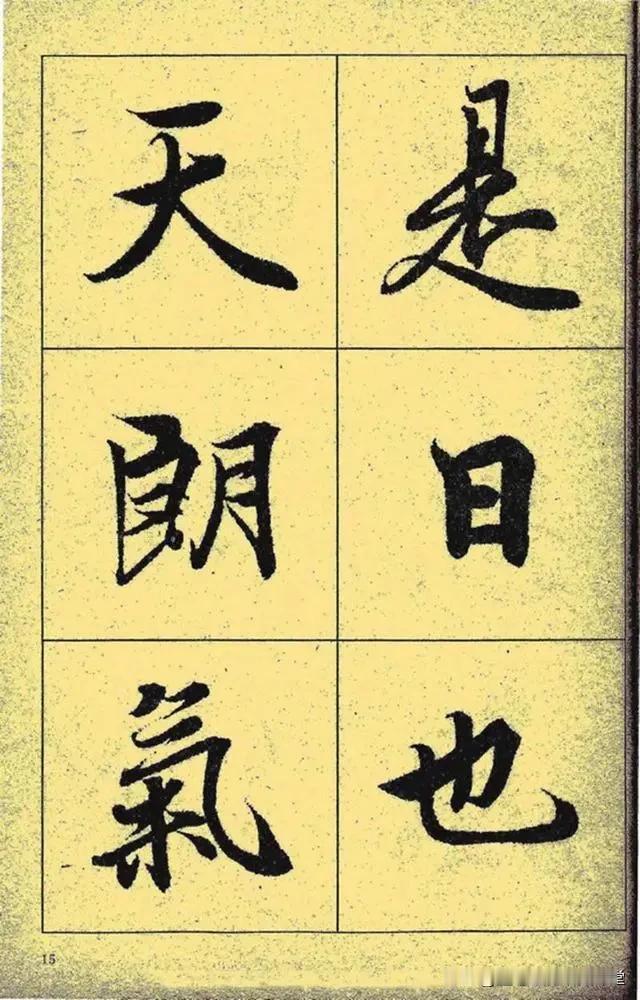 是日也
天朗氣
15